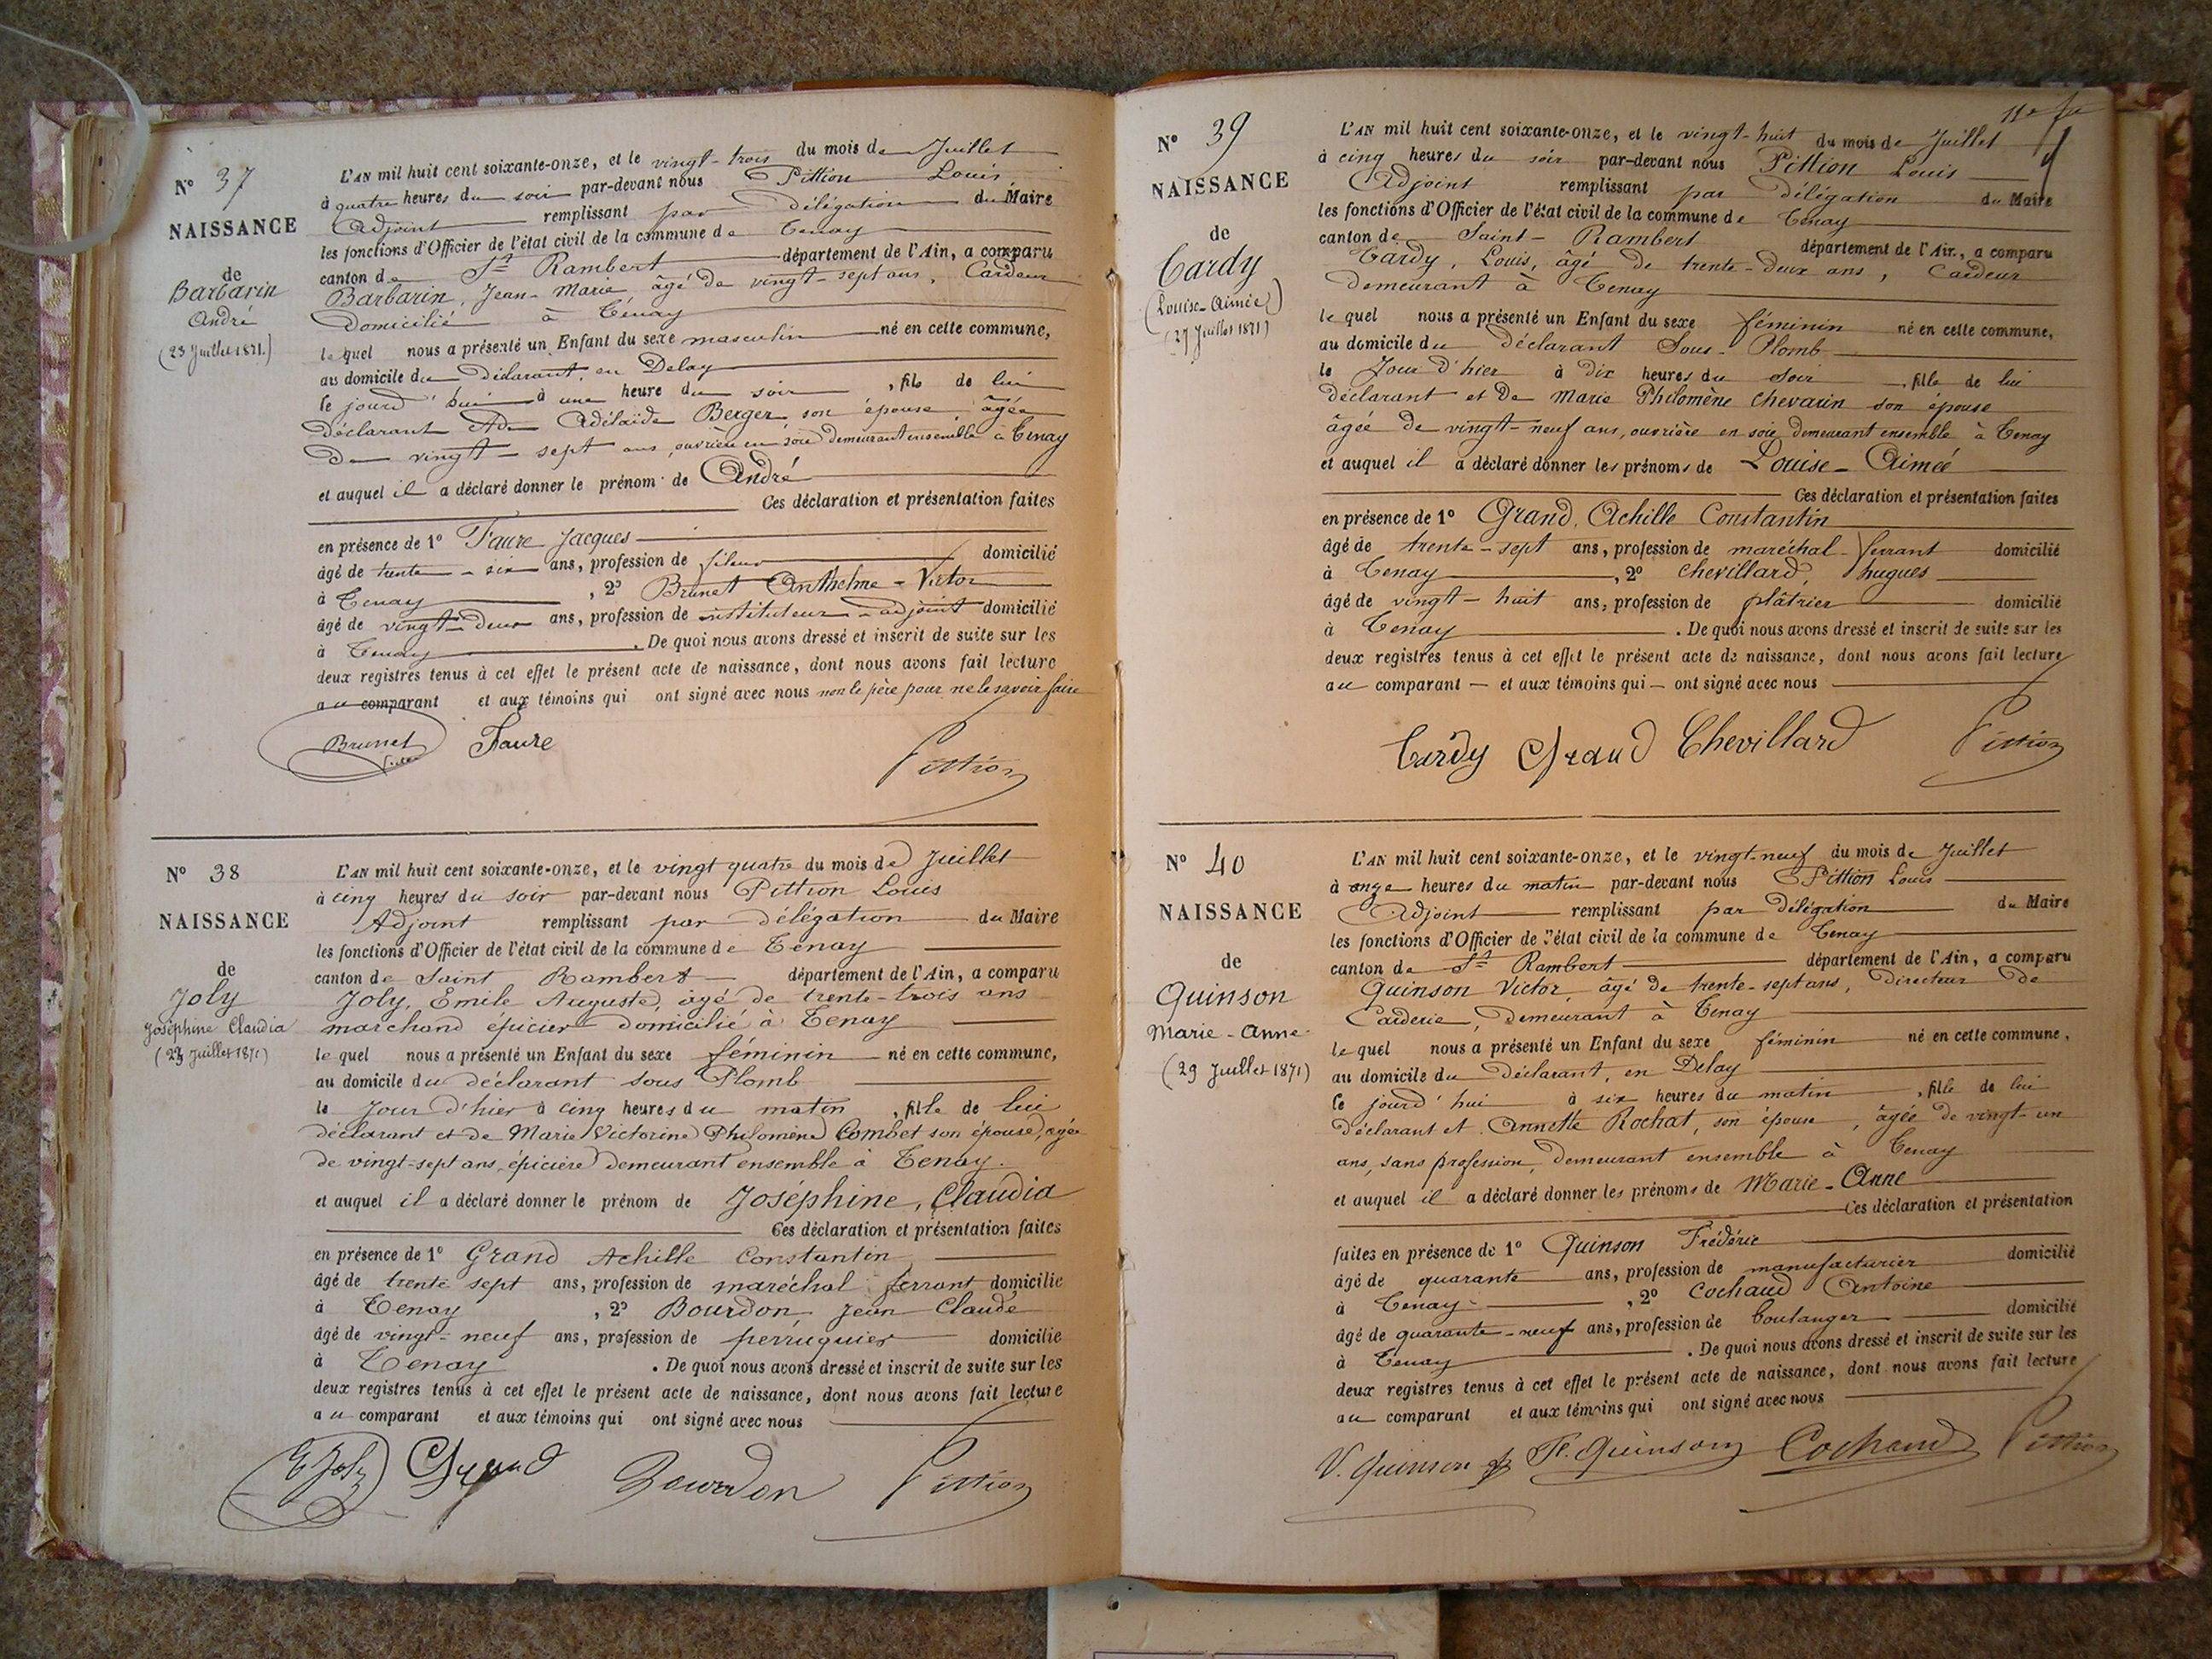 N° 37
NAISSANCE
de
Barbarin
André
(23 Juillet 1871.)
L'AN mil huit cent soixante-onze, et le vingt-trois du mois de Juillet
à quatre heures du soir par-devant nous Pittion Louis
Adjoint remplissant par délégation du Maire
les fonctions d'Officier de l'état civil de la commune de Tenay
canton de St Rambert département de l'Ain, a comparu
Barbarin, Jean-Marie âgé de vingt-sept ans, Cardeur
Domicilié à Tenay
lequel nous a présenté un Enfant du sexe masculin né en cette commune,
au domicile du Déclarant, en Delay
le jourd'hui à une heure du soir, fils de lui
Déclarant et de Adélaïde Berger son épouse, âgée
de vingt-sept ans, ouvrière en soie demeurant ensemble à Tenay
et auquel il a déclaré donner le prénom de André
Ces déclaration et présentation faites
en présence de 1° Faure Jacques
âgé de trente-six ans, profession de fileur domicilié
à Tenay, 2° Brunet Anthelme-Victor
âgé de vingt-deux ans, profession de instituteur-adjoint domicilié
à Tenay. De quoi nous avons dressé et inscrit de suite sur les
deux registres tenus à cet effet le présent acte de naissance, dont nous avons fait lecture
au comparant et aux témoins qui ont signé avec nous non le père pour ne le savoir faire
Brunet Faure Pittion
Victor
N° 38
NAISSANCE
de
Joly
Joséphine Claudia
(23 Juillet 1871)
L'AN mil huit cent soixante-onze, et le vingt quatre du mois de Juillet
à cinq heures du soir par-devant nous Pittion Louis
Adjoint remplissant par délégation du Maire
les fonctions d'Officier de l'état civil de la commune de Tenay
canton de Saint Rambert département de l'Ain, a comparu
Joly, Emile Auguste, âgé de trente-trois ans
marchand épicier domicilié à Tenay
lequel nous a présenté un Enfant du sexe féminin né en cette commune,
au domicile du déclarant sous Plomb
le jour d'hier à cinq heures du matin, fille de lui
déclarant et de Marie Victorine Philomène Combet son épouse, agée
de vingt-sept ans, épicière demeurant ensemble à Tenay.
et auquel il a déclaré donner le prénom de Joséphine, Claudia
Ces déclaration et présentation faites
en présence de 1° Grand Achille Constantin
âgé de trente sept ans, profession de maréchal ferrant domicilié
à Tenay, 2° Bourdon, Jean Claude
âgé de vingt-neuf ans, profession de perruquier domicilié
à Tenay. De quoi nous avons dressé et inscrit de suite sur les
deux registres tenus à cet effet le présent acte de naissance, dont nous avons fait lecture
au comparant et aux témoins qui ont signé avec nous
E Joly Grand Bourdon Pittion
N° 39
NAISSANCE
de
Tardy
(Louise-Aimée)
(27 Juillet 1871)
L'AN mil huit cent soixante-onze, et le vingt-huit du mois de Juillet
à cinq heures du soir par-devant nous Pittion Louis
Adjoint remplissant par délégation du Maire
les fonctions d'Officier de l'état civil de la commune de Tenay
canton de Saint-Rambert département de l'Ain, a comparu
Tardy, Louis, âgé de trente-deux ans, Cardeur
Demeurant à Tenay
lequel nous a présenté un Enfant du sexe féminin né en cette commune,
au domicile du Déclarant Sous-Plomb
le Jour d'hier à dix heures du soir, fille de lui
déclarant et de Marie Philomène Chevarin son épouse
âgée de vingt-neuf ans, ouvrière en soie, demeurant ensemble à Tenay
et auquel il a déclaré donner les prénoms de Louise-Aimée
Ces déclaration et présentation faites
en présence de 1° Grand, Achille Constantin
âgé de trente-sept ans, profession de maréchal-ferrant domicilié
à Tenay, 2° Chevillard, hugues
âgé de vingt-huit ans, profession de plâtrier domicilié
à Tenay. De quoi nous avons dressé et inscrit de suite sur les
deux registres tenus à cet effet le présent acte de naissance, dont nous avons fait lecture
au comparant et aux témoins qui ont signé avec nous
Tardy Grand Chevillard Pittion
N° 40
NAISSANCE
de
Quinson
Marie-Anne
(29 Juillet 1871)
L'AN mil huit cent soixante-onze, et le vingt-neuf du mois de Juillet
à onze heures du matin par-devant nous Pittion Louis
Adjoint remplissant par Délégation du Maire
les fonctions d'Officier de l'état civil de la commune de Tenay
canton de St Rambert département de l'Ain, a comparu
Quinson Victor, âgé de trente-sept ans, Directeur de
Carderie, Demeurant à Tenay
lequel nous a présenté un Enfant du sexe féminin né en cette commune,
au domicile du Déclarant, en Delay
le jourd'hui à six heures du matin, fille de lui
Déclarant et Annette Rochat, son épouse, âgée de vingt-un
ans, sans profession, Demeurant ensemble à Tenay
et auquel il a déclaré donner les prénoms de Marie-Anne
Ces déclaration et présentation
faites en présence de 1° Quinson Frédéric
âgé de quarante ans, profession de manufacturier domicilié
à Tenay, 2° Cochaud Antoine
âgé de quarante-neuf ans, profession de boulanger domicilié
à Tenay. De quoi nous avons dressé et inscrit de suite sur les
deux registres tenus à cet effet le présent acte de naissance, dont nous avons fait lecture
au comparant et aux témoins qui ont signé avec nous
V. Quinson Fc. Quinson Cochaud Pittion